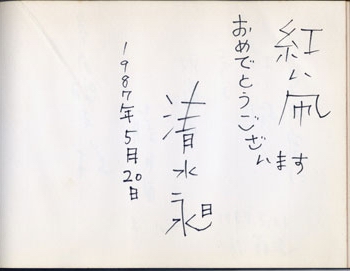 紅い凧
おめでとうございます
清水昶
1987年5月20日